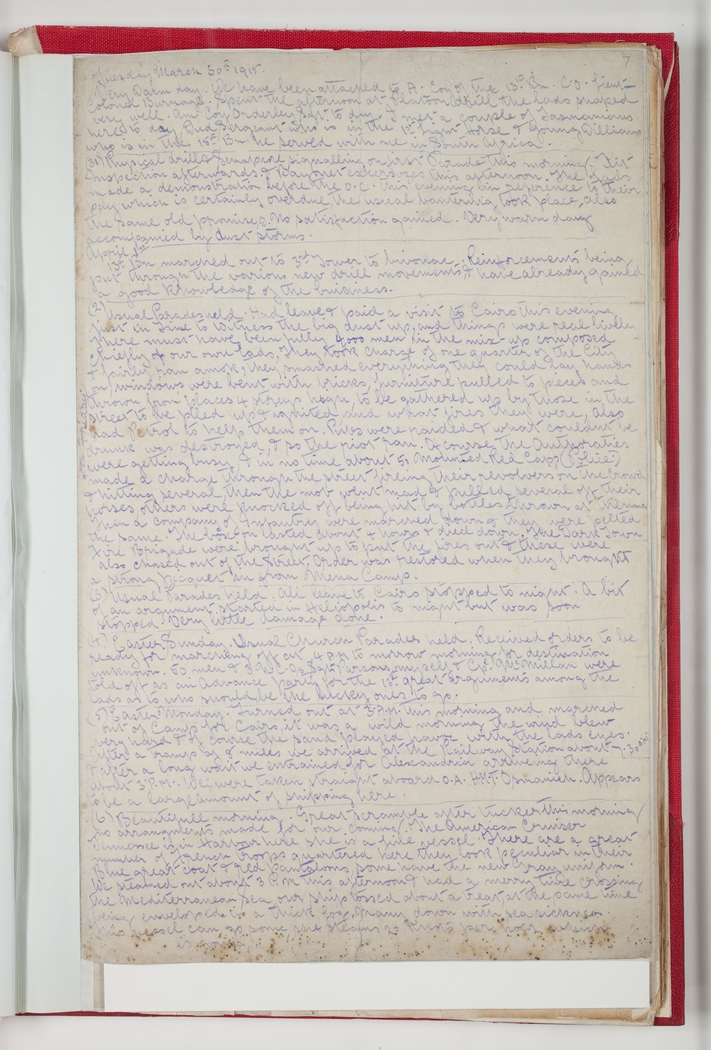 7
Tuesday March 30th 1915.
Very Warm day. We have been attached to A. Coy of the 13th Bn. C.O. Lieut-
Colonel Burnage. Spent the afternoon at Platoon Drill the lads shaped
very well. Am Coy Orderley Sgt. to day. I met a couple of Tasmanians
here to day, Bud Sergeant who is in the 1st Light Horse & Young Williams
who is in the 15th Bn he served with me in South Africa.
(31) Physical drill & Semaphore signalling on first Parade this morning, Kit
Inspection afterwards & Bayonet exercises this afternoon. The lads
made a demonstration before the O.C. this evening in reference to their
pay which is certainly overdue, the usual bantering took place, also
the same old promises. No satisfaction gained. Very warm day
accompanied by dust storms.
April 1st
13th Bn marched out to 3rd Tower to bivouac. Reinforcements being
put through the various new drill movements, & have already gained
a good knowledge of the business.
(2) Usual Parades held. Had leave & paid a visit to Cairo this evening
just in time to witness the big dust up, and things were real lively
there must have been fully 4,000 men in the mix-up composed
chiefly of our own lads, They took charge of one quarter of the City
& fairly ran amok, they smashed everything they could lay hands
on, windows were bent with bricks, furniture pulled to pieces and
thrown from places 4 storeys high to be gathered up by those in the
street to be piled up & ignited and what fires they were, also
had Petrol to help them on. Pubs were raided & what couldnt be
drunk was destroyed, & so the riot ran. Of course the Authorities
were getting busy & in no time about 50 Mounted Red Caps (Police)
made a charge through the street firing their revolvers on the crowd
& hitting several then the mob went mad & pulled several off their
horses others were knocked off being hit by bottles thrown at
then a company of Infantry were marched down & they were pelted
the same. The lasted about 4 hours & died down. The Dark Town
Fire Brigade were brought up to put the fires out & these were
also chased out of the street. Order was restored when they brought
a strong picquet in from Mena Camp.
(3) Usual Parades held. All leave to Cairo stopped to night. A bit
of an argument started in Heliopolis to night but was soon
stopped. Very little damage done.
(4) Easter Sunday. Usual Church Parades held. Received orders to be
ready for marching off at 4 A.M to morrow morning for destination
unknown. 53 men & 3 N.C.Os Sgt Parsons, myself & Cpl McMillan were
told off as an Advance Party for the 13th great arguments among the
lads as to who should be the lucky ones to go.
(5) Easter Monday. Turned out at 3. A.M. this morning and marched
out of Camp for Cairo, it was a wild morning the wind blew
very hard & of course the sand played havoc with the lads eyes.
After a tramp of 7 miles we arrived at the Railway Station about 7.30 AM
& after a long wait we entrained for Alexandria arriveing there
about 3 P.M. We were taken straight aboard O.A. HMT. Osmanieh. Appears
to be a large amount of shipping here.
(6) Beautifull morning. Great scramble after tucker this morning
no arrangments made for our coming. The American Cruiser
Tennesse is in Harbor here she is a fine vessel. There are a great
number of French troops quartered here they look peculiar in their
Blue great coat & red pantaloons, some have the new Gray uniform.
We steamed out about 3 P.M this afternoon & had a merry time crossing
the Mediterranean Sea our ship tossed about a treat at the same time
being enveloped in a thick fog, Many down with sea sickness
This vessel can go some she steams Knots per hour which
is